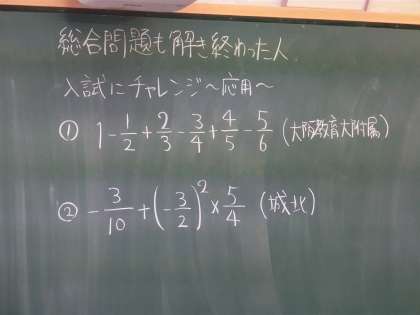 総合問題も解き終わった人
入試にチャレンジ~応用~
① 1 - 1/2 + 2/3 - 3/4 + 4/5 - 5/6 (大阪教育大附属)
② - 3/10 + (- 3/2)² × 5/4 (城北)